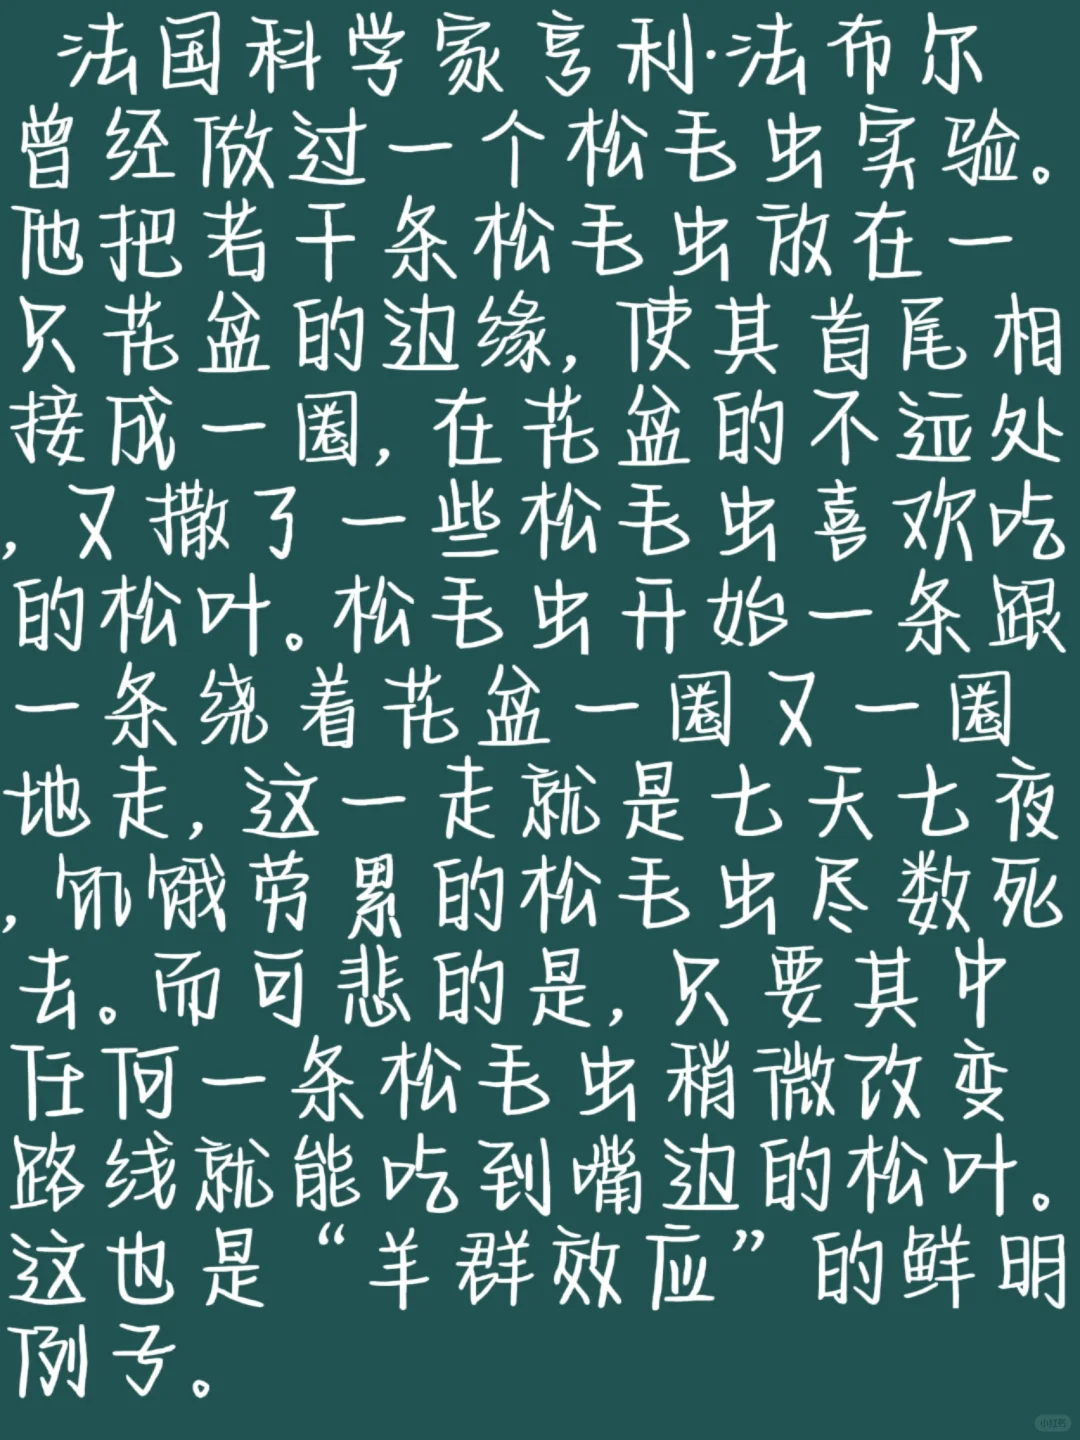 法国科学家亨利·法布尔
曾经做过一个松毛虫实验。
他把若干条松毛虫放在一
只花盆的边缘,使其首尾相
接成一圈,在花盆的不远处
,又撒了一些松毛虫喜欢吃
的松叶。松毛虫开始一条跟
一条绕着花盆一圈又一圈
地走,这一走就是七天七夜
,饥饿劳累的松毛虫尽数死
去。而可悲的是,只要其中
任何一条松毛虫稍微改变
路线就能吃到嘴边的松叶。
这也是“羊群效应”的鲜明
例子。
小红书